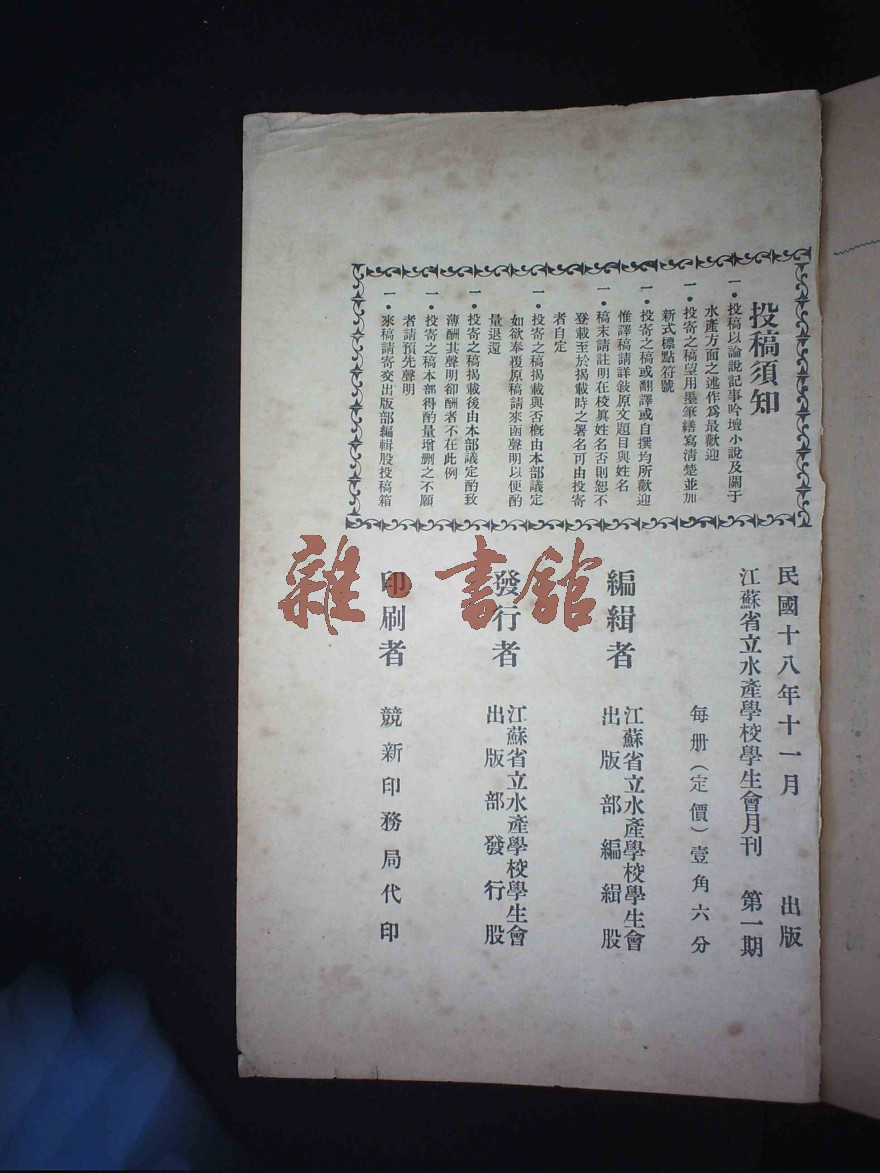 投稿須知
一•投稿以論說記事吟壇小說及關于
水產方面之述作爲最歡迎
一•投寄之稿望用墨筆繕寫清楚並加
新式標點符號
一•投寄之稿或翻譯或自撰均所歡迎
惟譯稿請詳敍原文題目與姓名
一•稿末請註明在校眞姓名否則恕不
登載至於揭載時之署名可由投寄
者自定
一•投寄之稿揭載與否概由本部議定
如欲奉覆原稿請來函聲明以便酌
量退還
一•投寄之稿揭載後由本部議定酌致
薄酬其聲明卻酬者不在此例
一•投寄之稿本部得酌量增删之不願
者請預先聲明
一•來稿請寄交出版部編輯股投稿箱
民國十八年十一月 出版
江蘇省立水產學校學生會月刊 第一期
每册(定價)壹角六分
編緝者 江蘇省立水產學校學生會
出版部編緝股
發行者 江蘇省立水產學校學生會
出版部發行股
印刷者 競新印務局代印
雜•書館